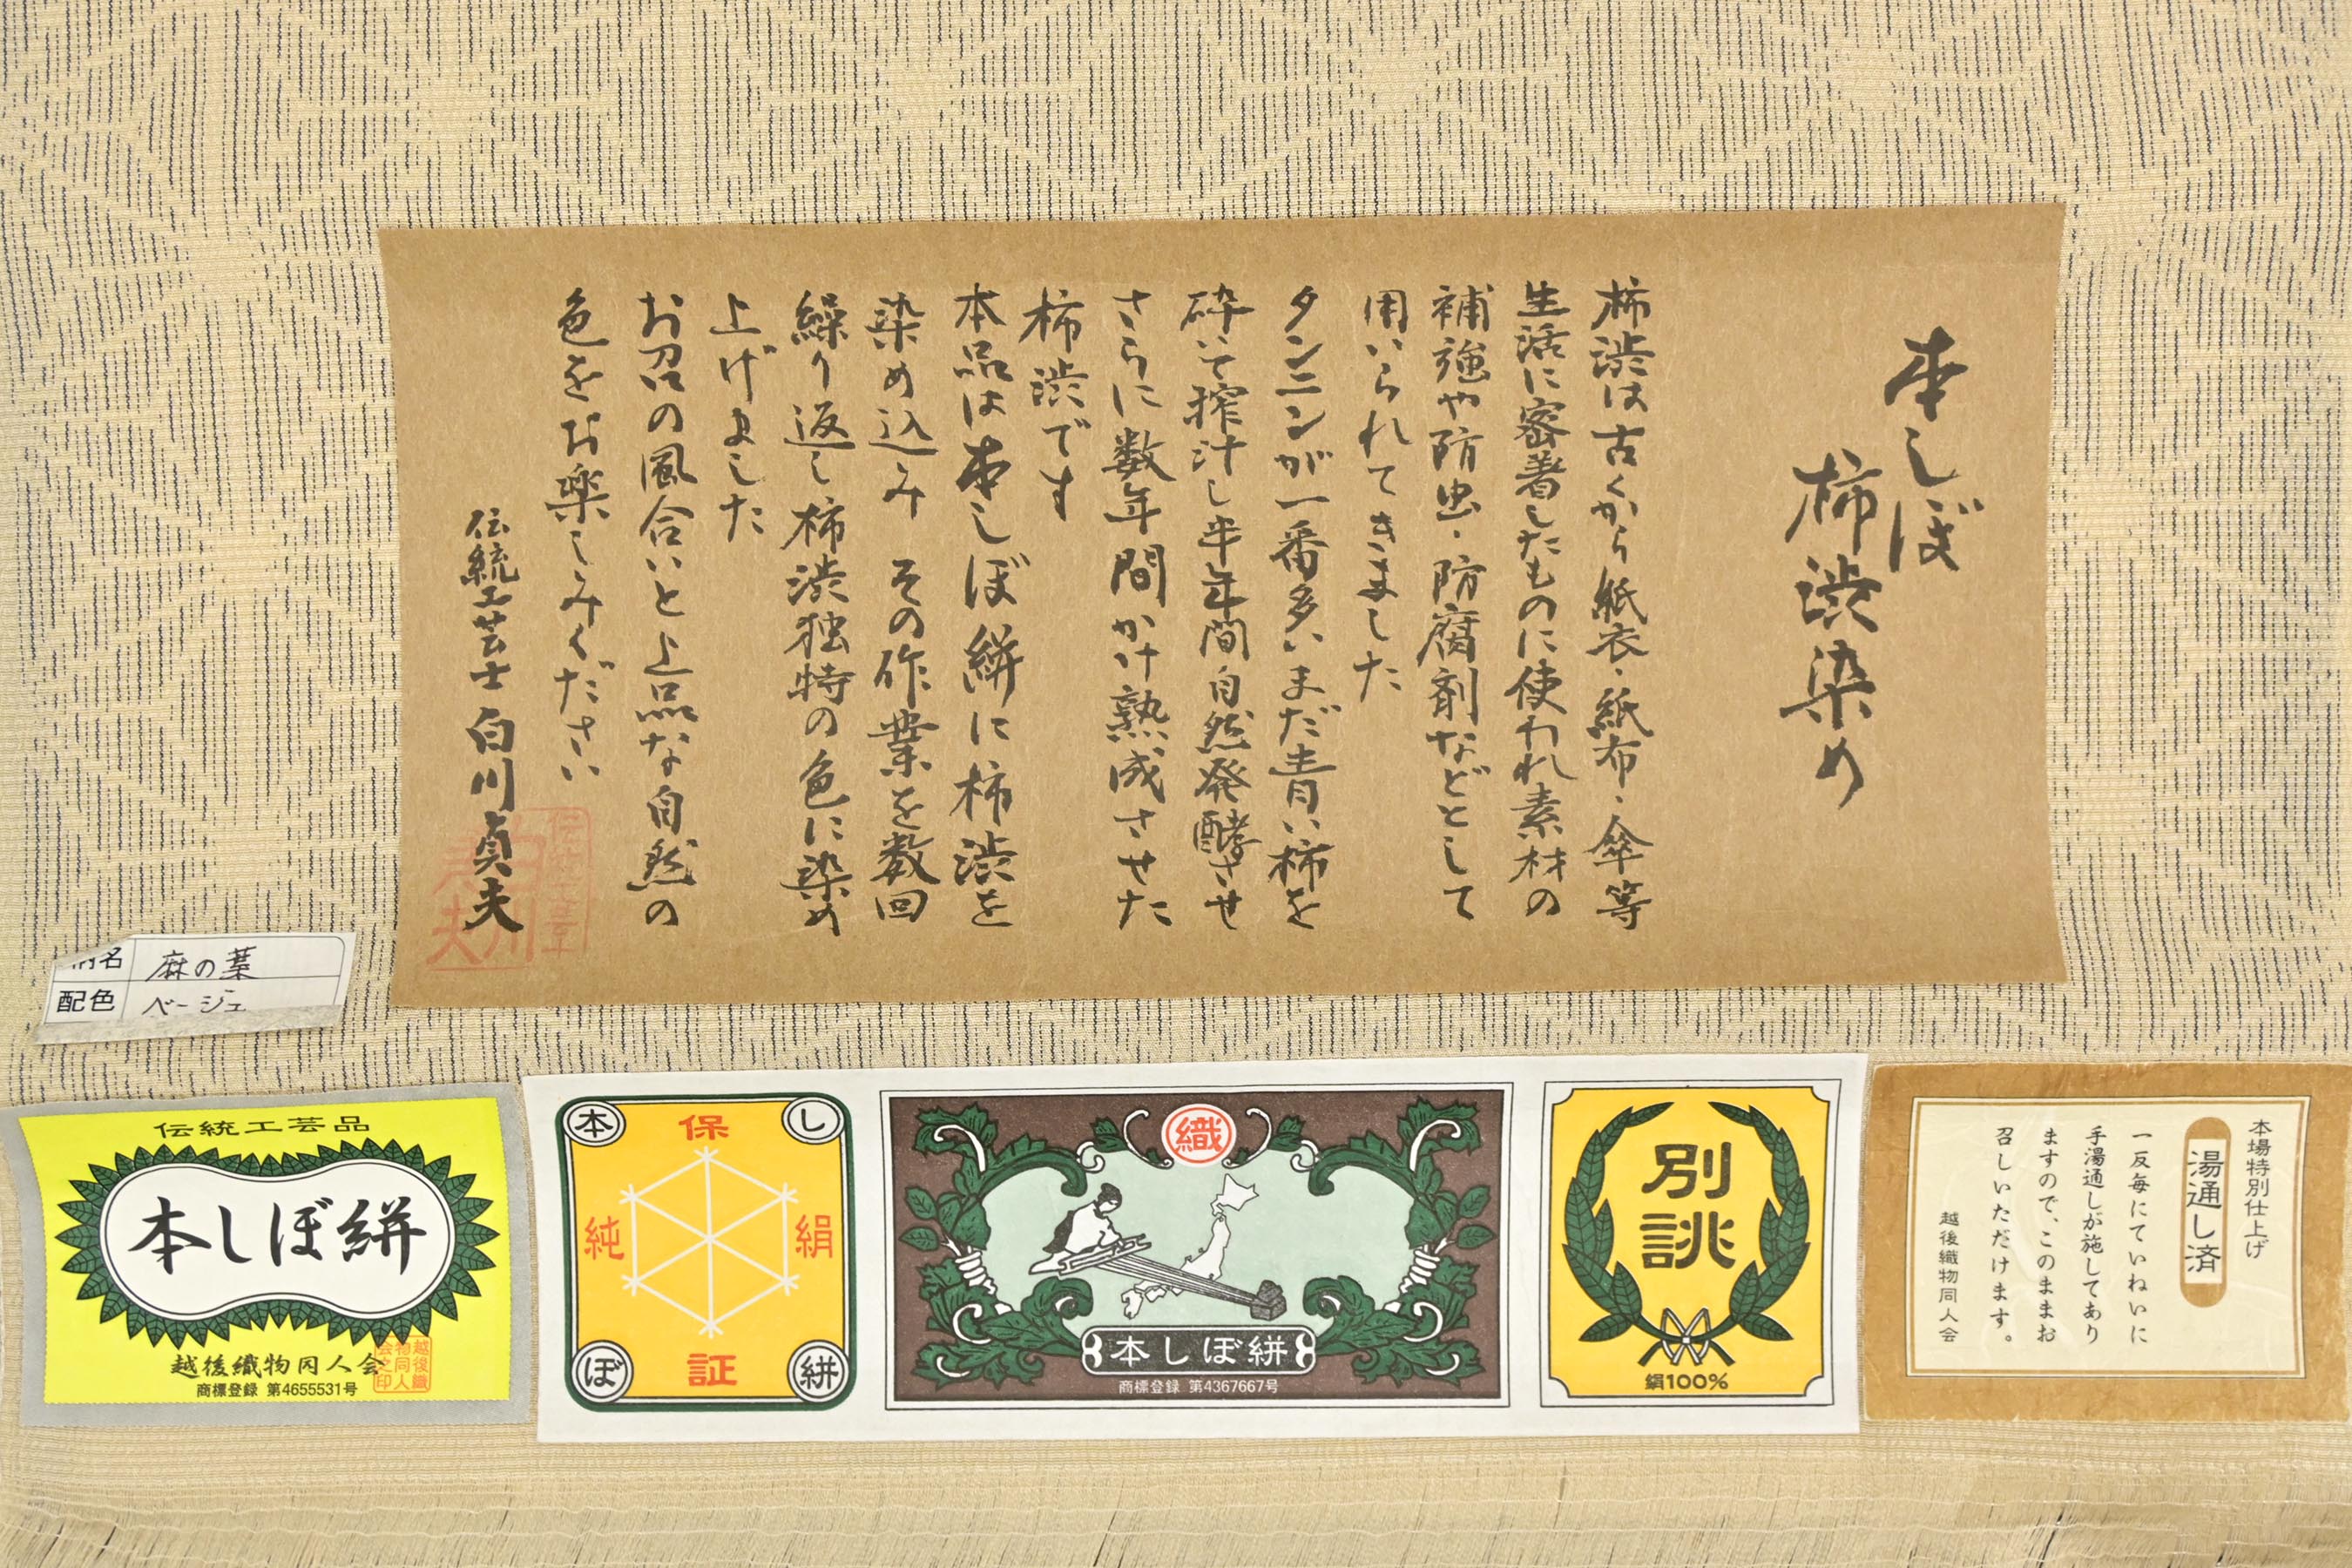 本しぼ
柿渋染め
柿渋は古くから紙衣・紙布・傘等
生活に密着したものに使われ素材の
補強や防虫・防腐剤などとして
用いられてきました
タンニンが一番多いまだ青い柿を
砕いて搾汁し半年間自然発酵させ
さらに数年間かけ熟成させた
柿渋です
本品は本しぼ絣に柿渋を
染め込み その作業を数回
繰り返し柿渋独特の色に染め
上げました
お召の風合いと上品な自然の
色をお楽しみください
伝統工芸士 白川貞夫
柄名 麻の葉
配色 ベージュ
伝統工芸品
本しぼ絣
越後織物同人会
商標登録 第4655531号
越後織
物同人
会之印
本 保 し
純 絹
ぼ 証 絣
織
本しぼ絣
商標登録 第4367667号
別
誂
絹100%
本場特別仕上げ
湯通し済
一反毎にていねいに
手湯通しが施してあり
ますので、このままお
召しいただけます。
越後織物同人会